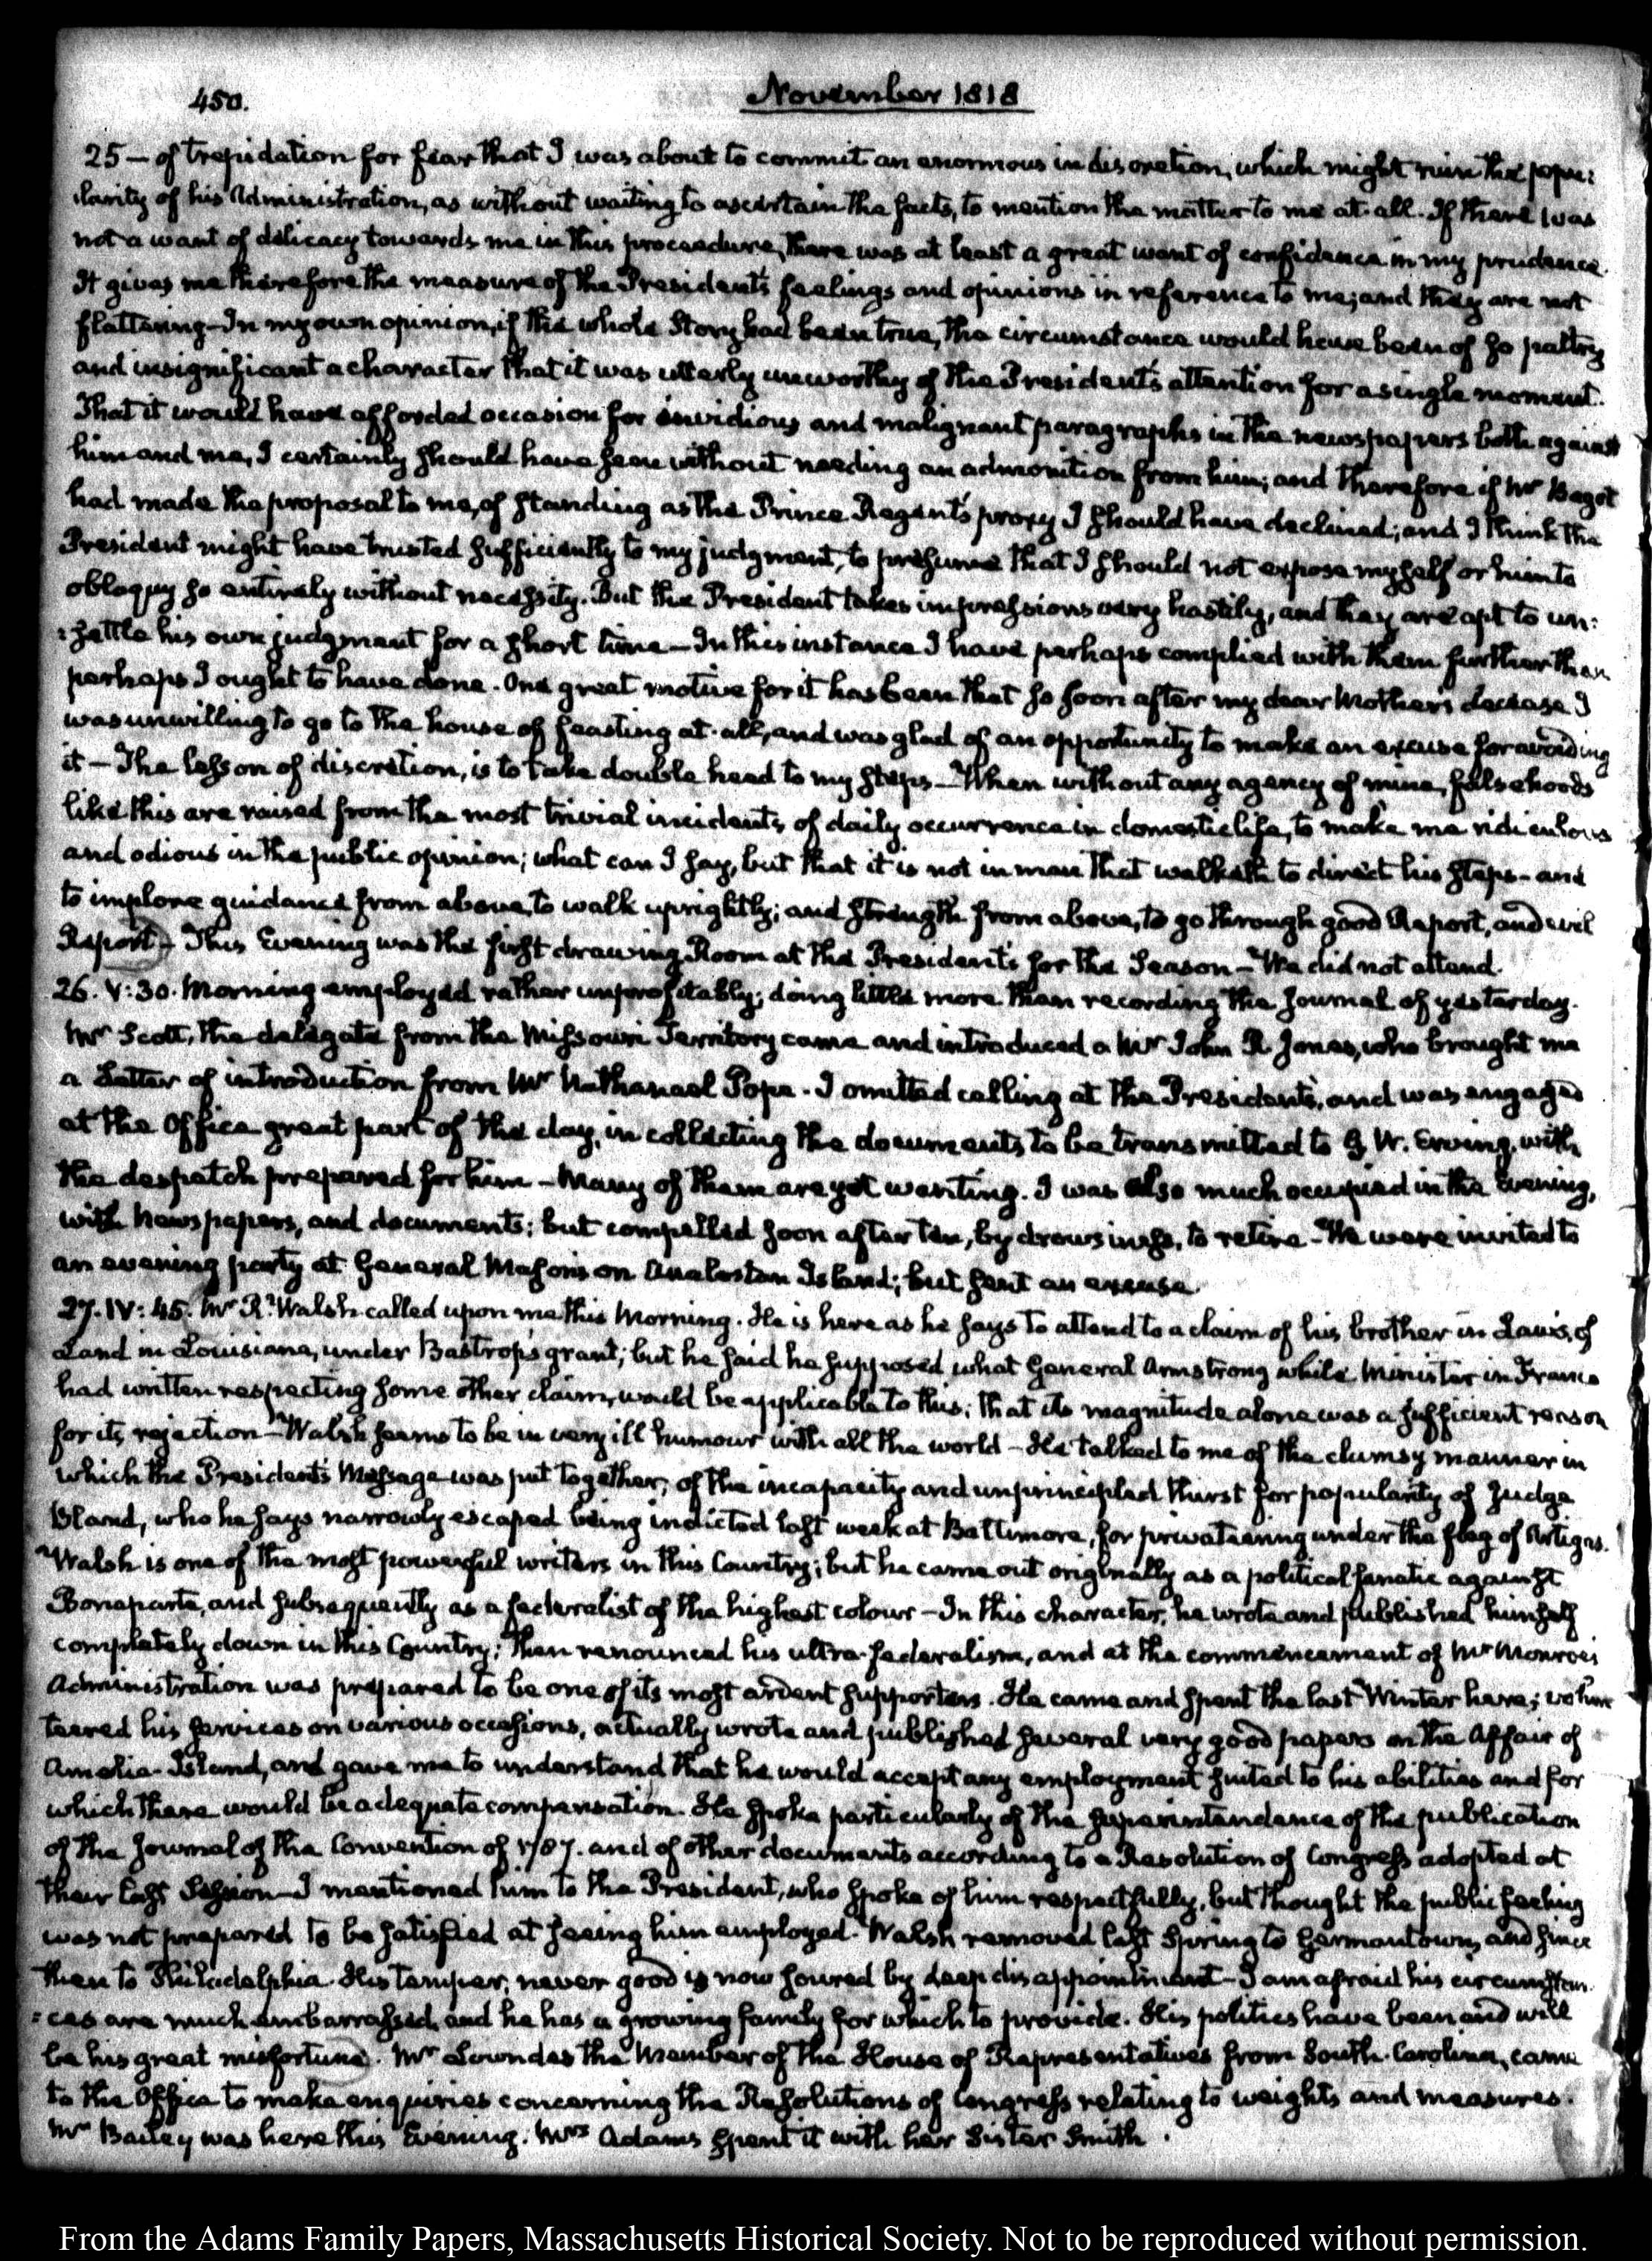 450.
November 1818
25 — of trepidation for fear that I was about to commit an enormous indiscretion, which might ruin the popu:
larity of his Administration, as without waiting to ascertain the facts, to mention the matter to me at all. If there was
not a want of delicacy towards me in this proceedure, there was at least a great want of confidence in my prudence.
It gives me therefore the measure of the President's feelings and opinions in reference to me; and they are not
flattering — In my own opinion, if the whole Story had been true, the circumstance would have been of so paltry
and insignificant a character that it was utterly unworthy of the President's attention for a single moment.
That it would have afforded occasion for invidious and malignant paragraphs in the newspapers both against
him and me, I certainly should have seen without needing an admonition from him; and therefore if Mr Bagot
had made the proposal to me, of standing as the Prince Regent's proxy I should have declined; and I think the
President might have trusted sufficiently to my judgment, to presume that I should not expose myself or him to
obloquy so entirely without necessity. But the President takes impressions very hastily, and they are apt to un:
:settle his own judgment for a short time — In this instance I have perhaps complied with them further than
perhaps I ought to have done. One great motive for it has been that so soon after my dear Mother's decease I
was unwilling to go to the house of feasting at all, and was glad of an opportunity to make an excuse for avoiding
it — The lesson of discretion, is to take double heed to my steps — When without any agency of mine, falsehoods
like this are raised from the most trivial incidents of daily occurrence in domestic life, to make me ridiculous
and odious in the public opinion; what can I say, but that it is not in man that walketh to direct his steps — and
to implore guidance from above, to walk uprightly; and strength from above, to go through good Report, and evil
Report — This Evening was the first drawing Room at the President's for the Season — We did not attend.
26. V:30. Morning employed rather unprofitably; doing little more than recording the Journal of yesterday.
Mr Scott, the delegate from the Missouri Territory came and introduced a Mr John R. Jones, who brought me
a Letter of introduction from Mr Nathanael Pope. I omitted calling at the President's, and was engaged
at the Office great part of the day, in collecting the documents to be transmitted to G. W. Erving, with
the despatch prepared for him — Many of them are yet wanting. I was also much occupied in the Evening,
with Newspapers, and documents; but compelled soon after ten, by drowsiness, to retire — We were invited to
an evening party at General Mason's on Analostan Island; but sent an excuse.
27. IV:45. Mr R. Walsh called upon me this Morning. He is here as he says to attend to a claim of his brother in Law's, of
Land in Louisiana, under Bastrop's grant; but he said he supposed what General Armstrong while Minister in France
had written respecting some other claim, would be applicable to this; that its magnitude alone was a sufficient reason
for its rejection — Walsh seems to be in very ill humour with all the world — He talked to me of the clumsy manner in
which the President's Message was put together; of the incapacity and unprincipled thirst for popularity of Judge
Bland, who he says narrowly escaped being indicted last week at Baltimore, for privateering under the flag of Artigas.
Walsh is one of the most powerful writers in this Country; but he came out originally as a political fanatic against
Bonaparte, and subsequently as a federalist of the highest colour — In this character, he wrote and published himself
completely down in this Country; then renounced his ultra-federalism, and at the commencement of Mr Monroe's
Administration was prepared to be one of its most ardent supporters. He came and spent the last Winter here; volun
teered his services on various occasions, actually wrote and published several very good papers on the Affair of
Amelia-Island, and gave me to understand that he would accept any employment suited to his abilities and for
which there would be adequate compensation. He spoke particularly of the superintendence of the publication
of the Journal of the Convention of 1787. and of other documents according to a Resolution of Congress adopted at
their last Session — I mentioned him to the President, who spoke of him respectfully, but thought the public feeling
was not prepared to be satisfied at seeing him employed. Walsh removed last Spring to Germantown, and since
then to Philadelphia. His temper, never good is now soured by deep disappointment — I am afraid his circumstan
:ces are much embarrassed, and he has a growing family for which to provide. His politics have been and will
be his great misfortune. Mr Lowndes the Member of the House of Representatives from South-Carolina, came
to the Office to make enquiries concerning the Resolutions of Congress relating to weights and measures.
Mr Bailey was here this Evening. Mrs Adams spent it with her Sister Smith.
From the Adams Family Papers, Massachusetts Historical Society. Not to be reproduced without permission.